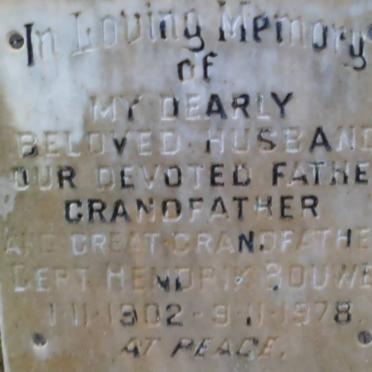 In Loving Memory
of
MY DEARLY
BELOVED HUSBAND
OUR DEVOTED FATHE
GRANDFATHER
AND GREAT GRANDFATHE
GERT HENDRIK BOUWE
1·11·1902 - 9·11·1978
AT PEACE.